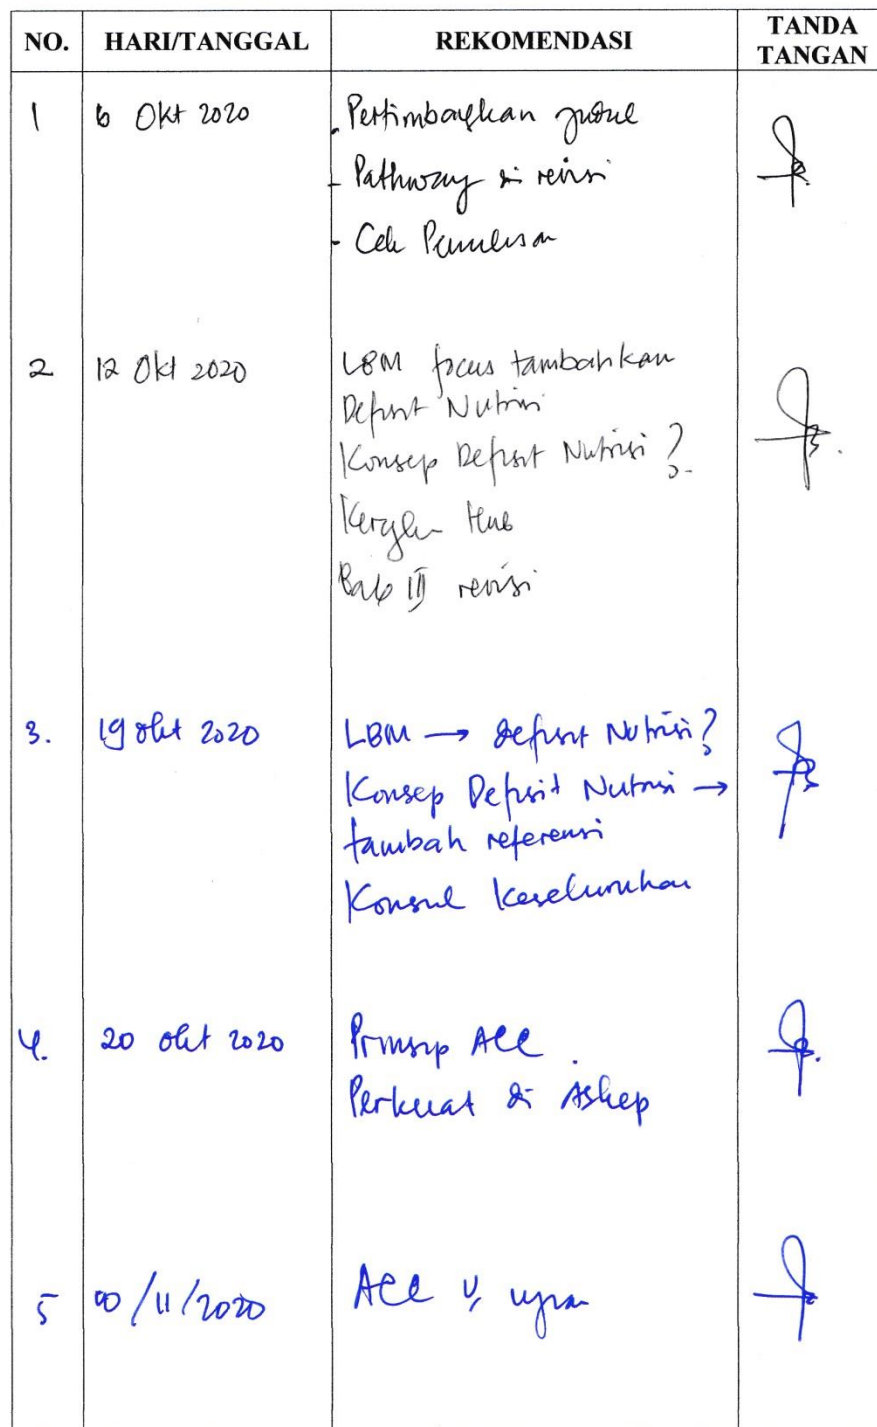 NO. HARI/TANGGAL REKOMENDASI TANDA TANGAN
1 6 Okt 2020 - Pertimbangkan judul
- Pathway di revisi
- Cek Penulisan
2 12 Okt 2020 LBM focus tambahkan
Defisit Nutrisi
Konsep Defisit Nutrisi ?
Bab III revisi
3. 19 okt 2020 LBM → defisit Nutrisi?
Konsep Defisit Nutrisi →
tambah referensi
Konsul Keseluruhan
4. 20 okt 2020 Prinsip ACC
Perkuat di Askep
5 /11/2020 ACC u/ ujian